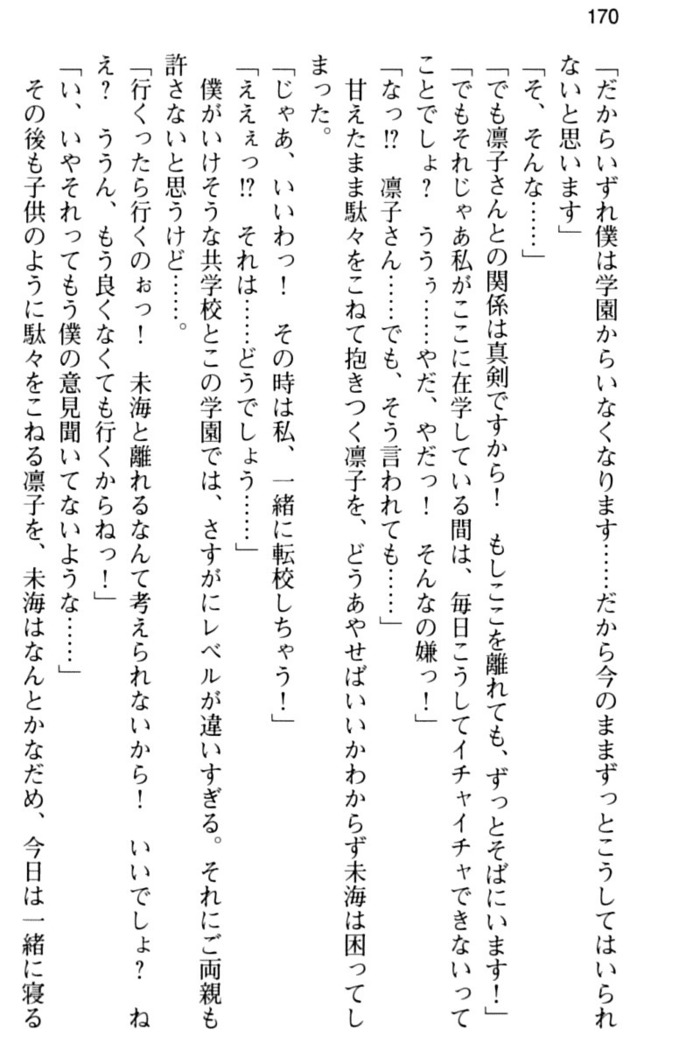 170
「だからいずれ僕は学園からいなくなります……だから今のままずっとこうしてはいられ
ないと思います」
「そ、そんな……」
「でも凛子さんとの関係は真剣ですから！　もしここを離れても、ずっとそばにいます！」
「でもそれじゃあ私がここに在学している間は、毎日こうしてイチャイチャできないって
ことでしょ？　ううぅ……やだ、やだっ！　そんなの嫌っ！」
「なっ!?　凛子さん……でも、そう言われても……」
　甘えたまま駄々をこねて抱きつく凛子を、どうあやせばいいかわからず未海は困ってし
まった。
「じゃあ、いいわっ！　その時は私、一緒に転校しちゃう！」
「ええぇっ!?　それは……どうでしょう……」
　僕がいけそうな共学校とこの学園では、さすがにレベルが違いすぎる。それにご両親も
許さないと思うけど……。
「行くったら行くのぉっ！　未海と離れるなんて考えられないから！　いいでしょ？　ね
え？　ううん、もう良くなくても行くからねっ！」
「い、いやそれってもう僕の意見聞いてないような……」
　その後も子供のように駄々をこねる凛子を、未海はなんとかなだめ、今日は一緒に寝る